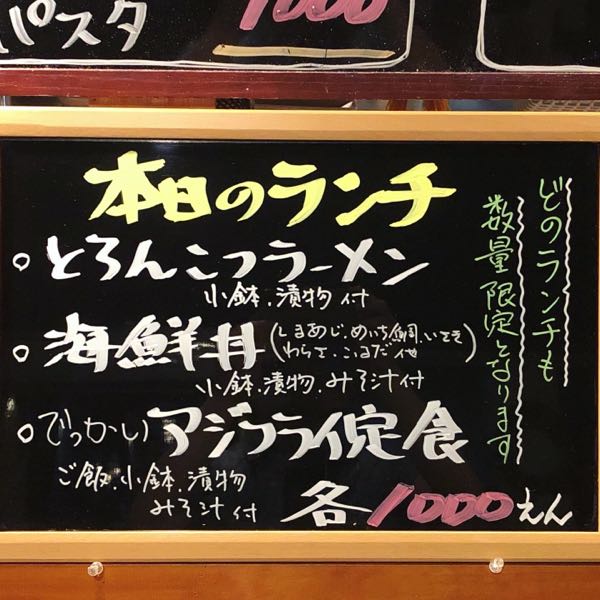 パスタ
1000
本日のランチ
どのランチも
数量限定となります
。とろんこつラーメン
小鉢、漬物付
。海鮮丼(しまあじ、めいち鯛、いてさ
わらさ、こまだ他)
小鉢、漬物、みそ汁付
。でっかいアジフライ定食
ご飯、小鉢、漬物
みそ汁付
各1000えん